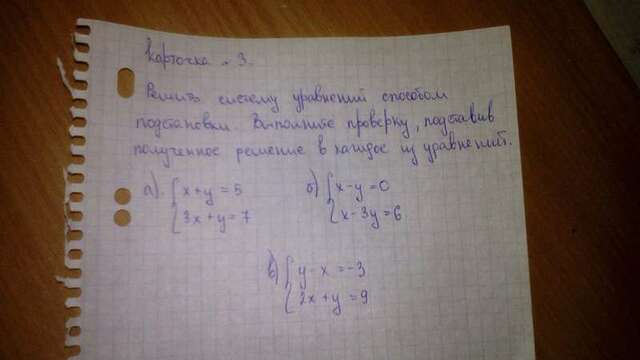 Карточка № 3.
Решить систему уравнений способом
подстановки. Выполните проверку, подставив
полученное решение в каждое из уравнений.
а) { x+y=5
3x+y=7
б) { x-y=0
x-3y=6
в) { y-x=-3
2x+y=9